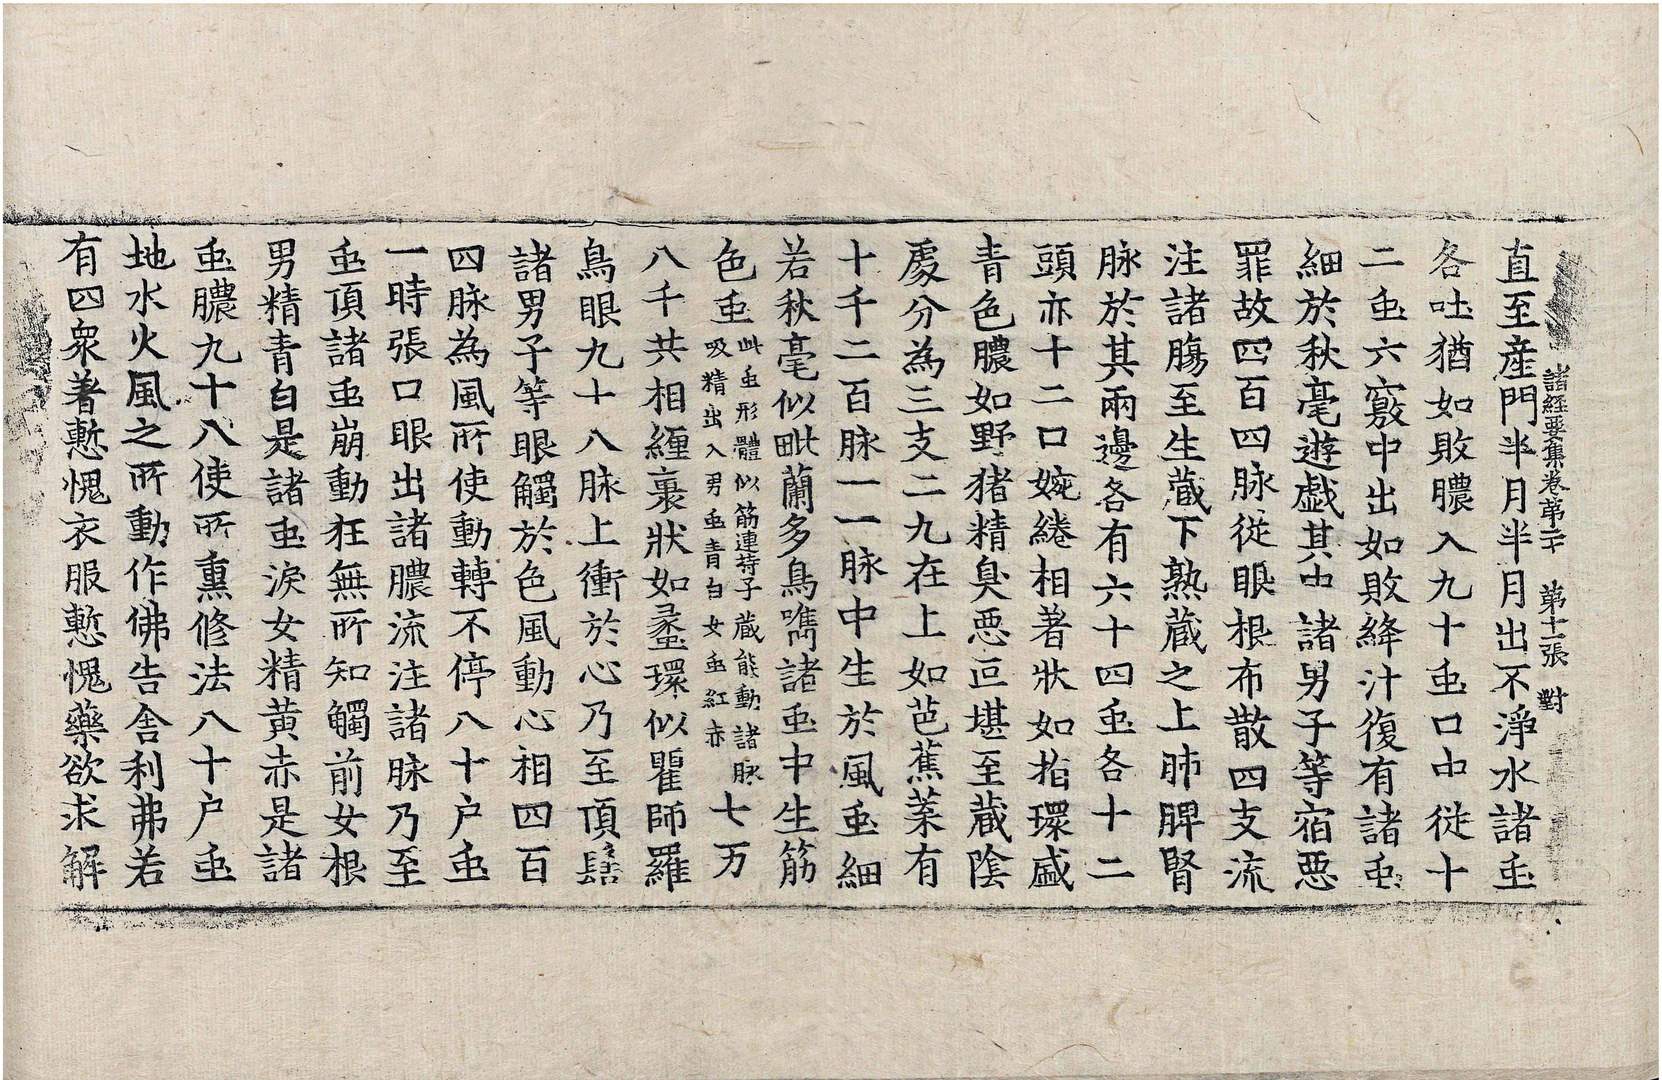 諸經要集卷第二十 第十一張 對
直至産門半月半月出不淨水諸䖝
各吐猶如敗膿入九十䖝口中從十
二䖝六竅中出如敗絳汁復有諸䖝
細於秋毫遊戲其中諸男子等宿惡
罪故四百四脉從眼根布散四支流
注諸膓至生藏下熟藏之上肺脾腎
脉於其兩邊各有六十四䖝各十二
頭亦十二口婉綣相著狀如指環盛
青色膿如野猪精臭惡叵堪至藏陰
處分為三支二九在上如芭蕉葉有
十千二百脉一一脉中生於風䖝細
若秋毫似毗蘭多鳥㗱諸䖝中生筋
色䖝此䖝形體似筋連持子藏能動諸脉吸精出入男䖝青白女䖝紅赤七万
八千共相纏裹狀如蠡環似瞿師羅
鳥眼九十八脉上衝於心乃至頂髻
諸男子等眼觸於色風動心相四百
四脉為風所使動轉不停八十戶䖝
一時張口眼出諸膿流注諸脉乃至
䖝頂諸䖝崩動狂無所知觸前女根
男精青白是諸䖝淚女精黃赤是諸
䖝膿九十八使所熏修法八十戶䖝
地水火風之所動作佛告舍利弗若
有四衆著慙愧衣服慙愧藥欲求解